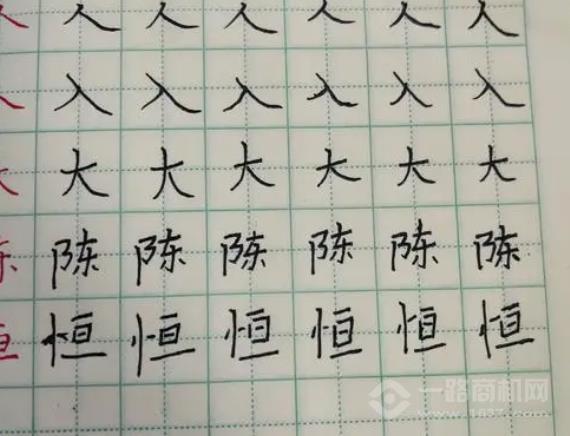 人 人 人 人 人 人 人
入 入 入 入 入 入 入
大 大 大 大 大 大 大
陈 陈 陈 陈 陈 陈 陈
恒 恒 恒 恒 恒 恒 恒
一路商机网
www.1637.com